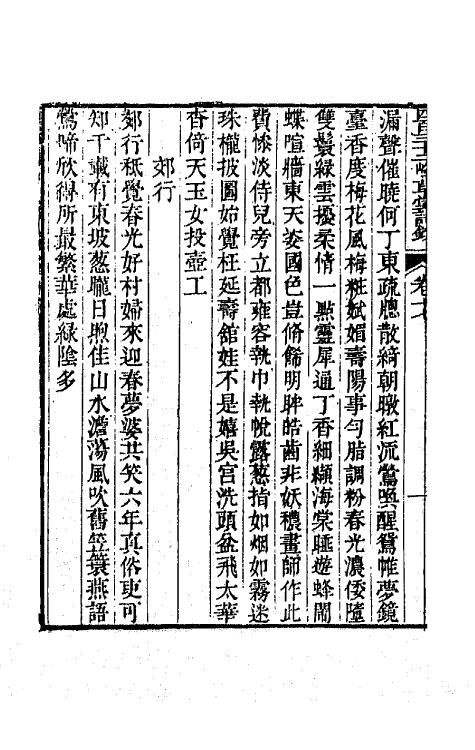 漏聲催曉何丁東疏牕散綺朝暾紅流鶯喚醒鴛帷夢鏡
臺香度梅花風梅粧斌媚壽陽事勻脂調粉春光濃倭墮
雙鬟綠雲擾柔情一點靈犀通丁香細纈海棠睡遊蜂鬧
蝶喧牆東天姿國色豈脩餙明眸皓齒非妖穠畫師作此
費慘淡侍兒旁立都雍容執巾執帨露蔥指如烟如霧迷
珠櫳披圖始覺枉延壽舘娃不是嬉吳宮洗頭盆飛太華
杳倚天玉女投壺工
郊行
郊行秪覺春光好村婦來迎春夢婆共笑六年真俗吏可
知千載有東坡蔥朧日煦佳山水澹蕩風吹舊笠簑燕語
鶯啼欣得所最繁華處綠陰多